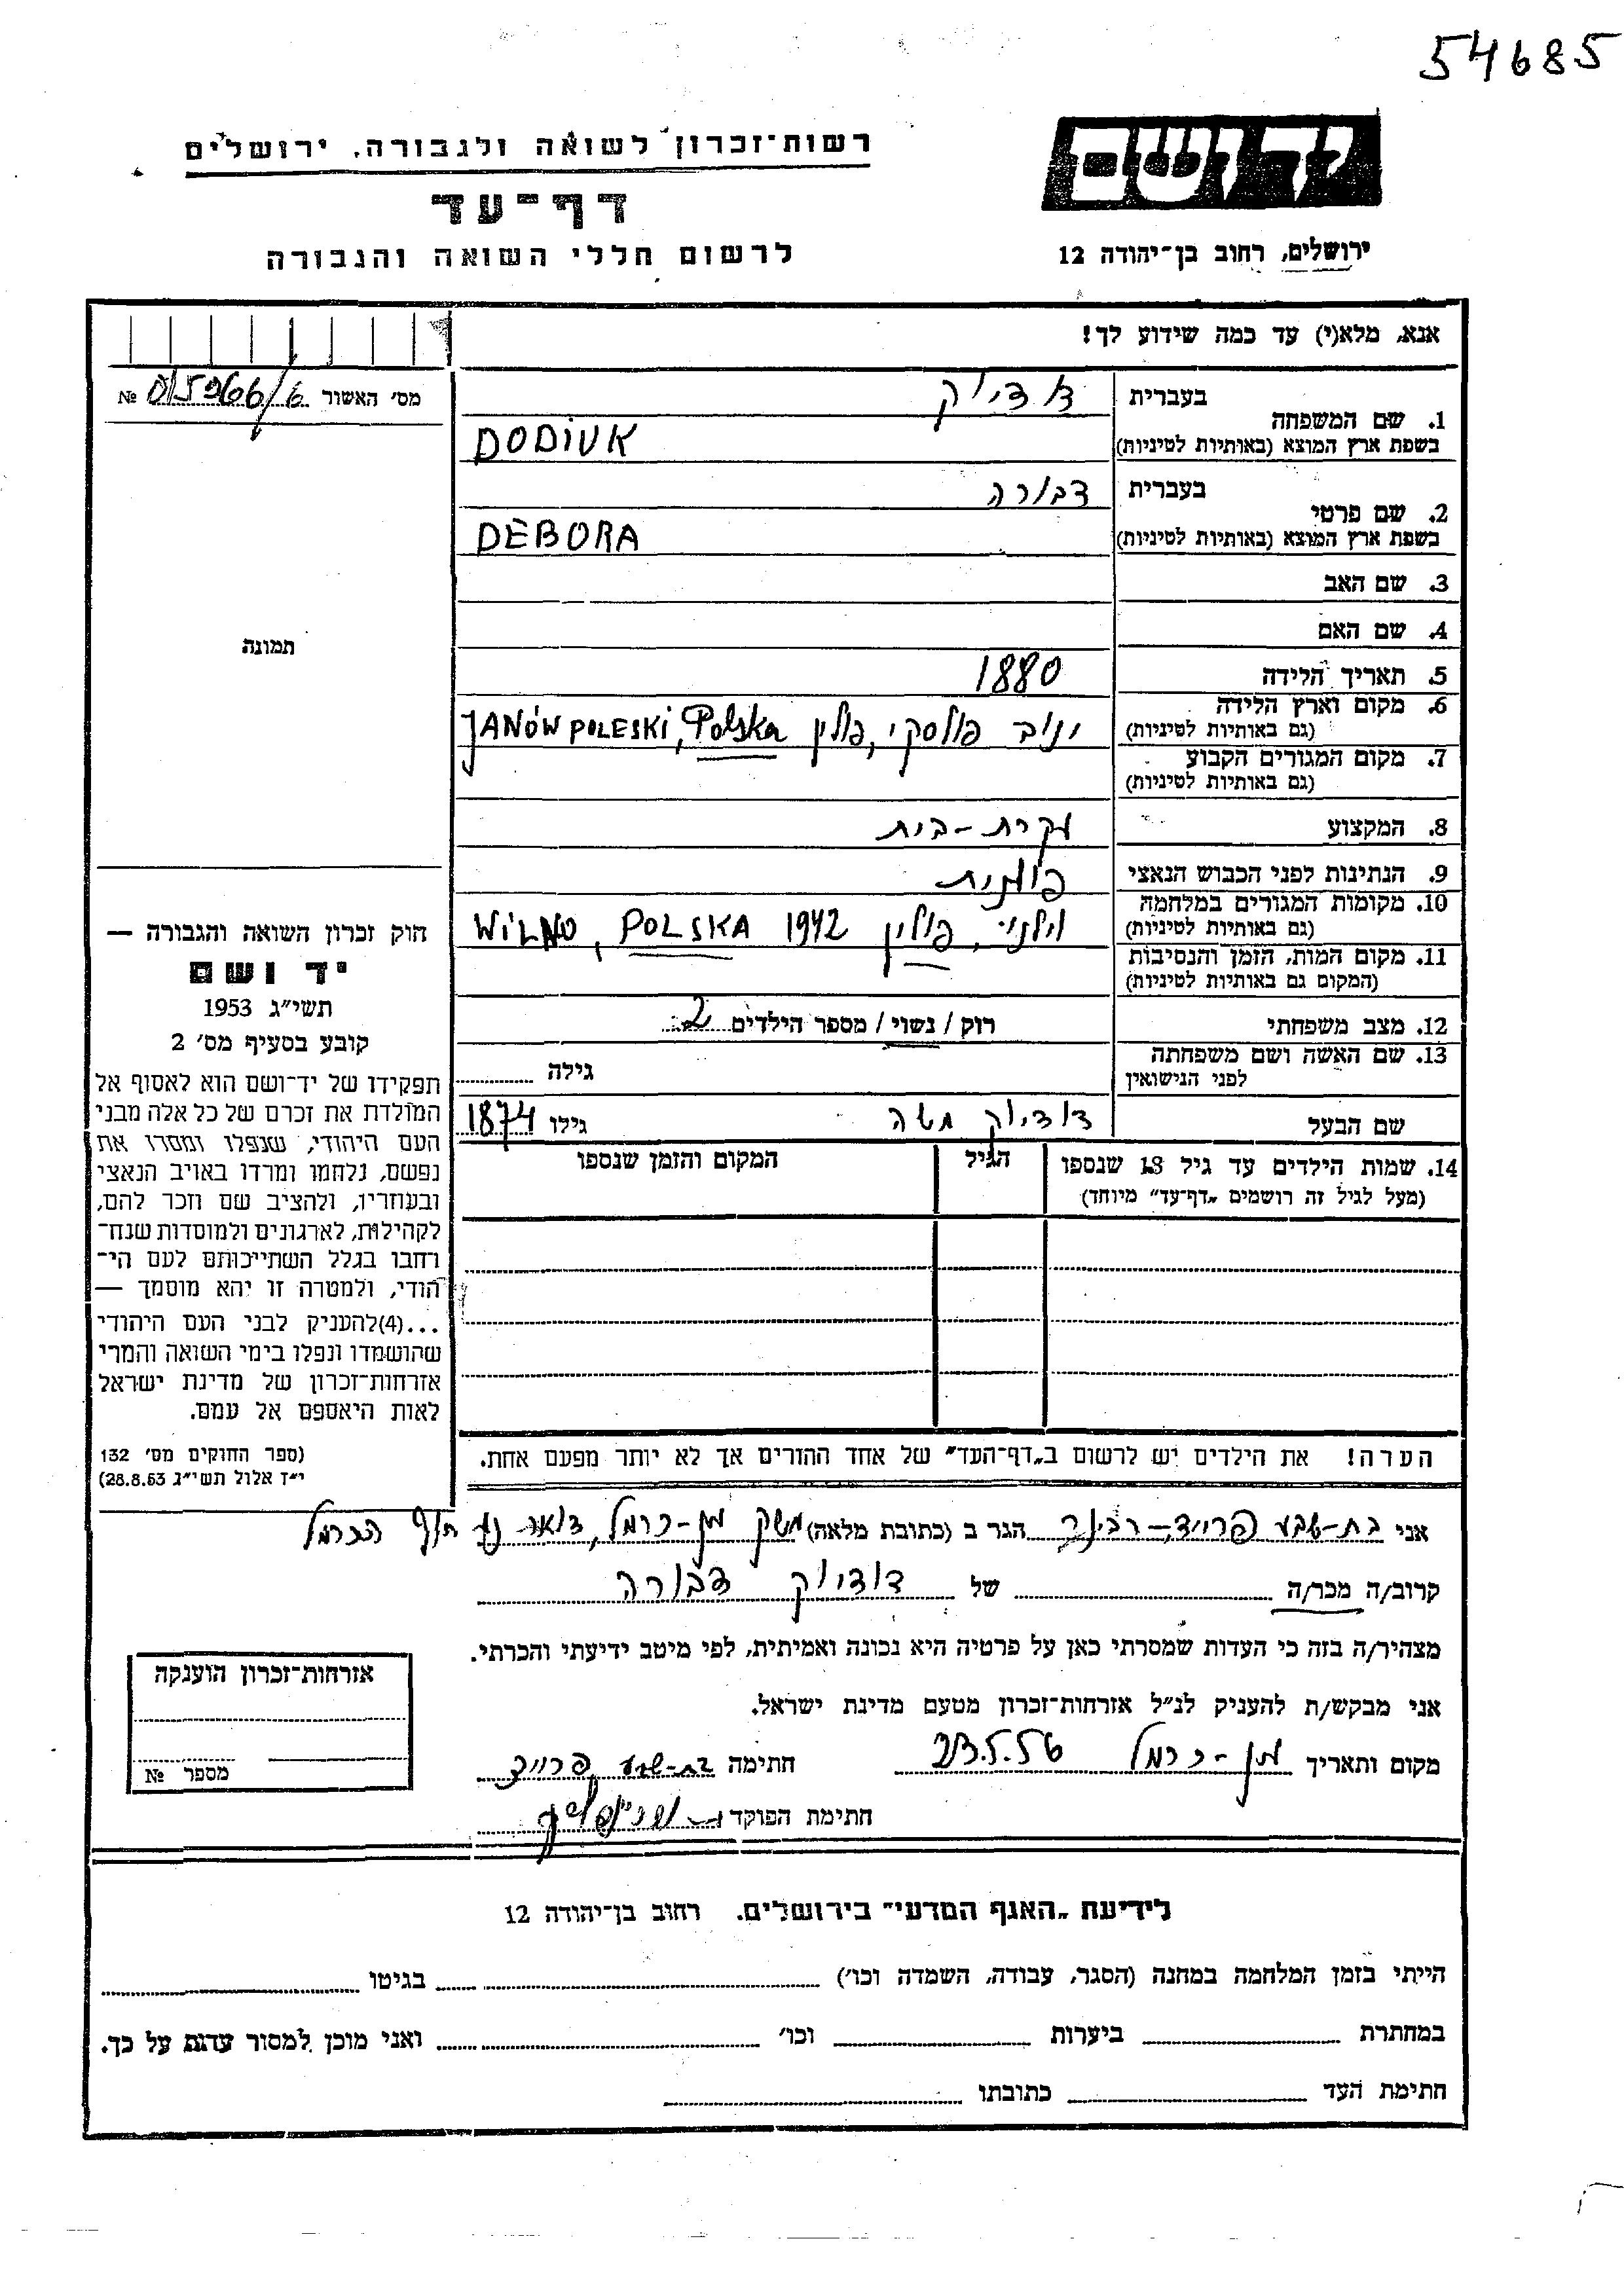 54685
יד ושם
רשות־זכרון לשואה ולגבורה, ירושלים
דף־עד
לרשום חללי השואה והגבורה
ירושלים, רחוב בן־יהודה 12
אנא, מלא(י) עד כמה שידוע לך!
מס׳ האשור № 0/5966/6
1. שם המשפחה
בעברית דודיוק
בשפת ארץ המוצא (באותיות לטיניות) DODIUK
2. שם פרטי
בעברית דבורה
בשפת ארץ המוצא (באותיות לטיניות) DEBORA
3. שם האב
4. שם האם
תמונה
5. תאריך הלידה 1880
6. מקום וארץ הלידה
(גם באותיות לטיניות) ינוב פולסקי, פולין JANÓW POLESKI, Polska
7. מקום המגורים הקבוע
(גם באותיות לטיניות)
8. המקצוע עקרת-בית
9. הנתינות לפני הכבוש הנאצי פולנית
10. מקומות המגורים במלחמה
(גם באותיות לטיניות) וילני, פולין WILNO, POLSKA 1942
11. מקום המות, הזמן והנסיבות
(המקום גם באותיות לטיניות)
12. מצב משפחתי רוק / נשוי / מספר הילדים 2
13. שם האשה ושם משפחתה
לפני הנישואין גילה
שם הבעל דודיוק משה גילו 1874
14. שמות הילדים עד גיל 18 שנספו הגיל המקום והזמן שנספו
(מעל לגיל זה רושמים „דף־עד״ מיוחד)
הערה! את הילדים יש לרשום ב„דף־העד״ של אחד ההורים אך לא יותר מפעם אחת.
חוק זכרון השואה והגבורה —
יד ושם
תשי״ג 1953
קובע בסעיף מס׳ 2
תפקידו של יד־ושם הוא לאסוף אל
המולדת את זכרם של כל אלה מבני
העם היהודי, שנפלו ומסרו את
נפשם, נלחמו ומרדו באויב הנאצי
ובעוזריו, ולהציב שם וזכר להם,
לקהילות, לארגונים ולמוסדות שנח־
רחבו בגלל השתייכותם לעם הי־
הודי, ולמטרה זו יהא מוסמך —
...(4)להעניק לבני העם היהודי
שהושמדו ונפלו בימי השואה והמרי
אזרחות־זכרון של מדינת ישראל
לאות היאספם אל עמם.
(ספר החוקים מס׳ 132
י״ד אלול תשי״ג 28.8.53)
אני בת-שבע פרויד-רבינר הגר ב (כתובת מלאה) משק מגן-כרמל, דואר נע חוף הכרמל
קרוב/ה מכר/ה של דודיוק דבורה
מצהיר/ה בזה כי העדות שמסרתי כאן על פרטיה היא נכונה ואמיתית, לפי מיטב ידיעתי והכרתי.
אני מבקש/ת להעניק לנ״ל אזרחות־זכרון מטעם מדינת ישראל.
מקום ותאריך מגן-כרמל 23.5.56 חתימה בת-שבע פרויד
חתימת הפוקד
אזרחות־זכרון הוענקה
מספר №
לידיעת „האגף המדעי״ בירושלים. רחוב בן־יהודה 12
הייתי בזמן המלחמה במחנה (הסגר, עבודה, השמדה וכו׳) בגיטו
במחתרת ביערות וכו׳ ואני מוכן למסור עדות על כך.
חתימת העד כתובתו